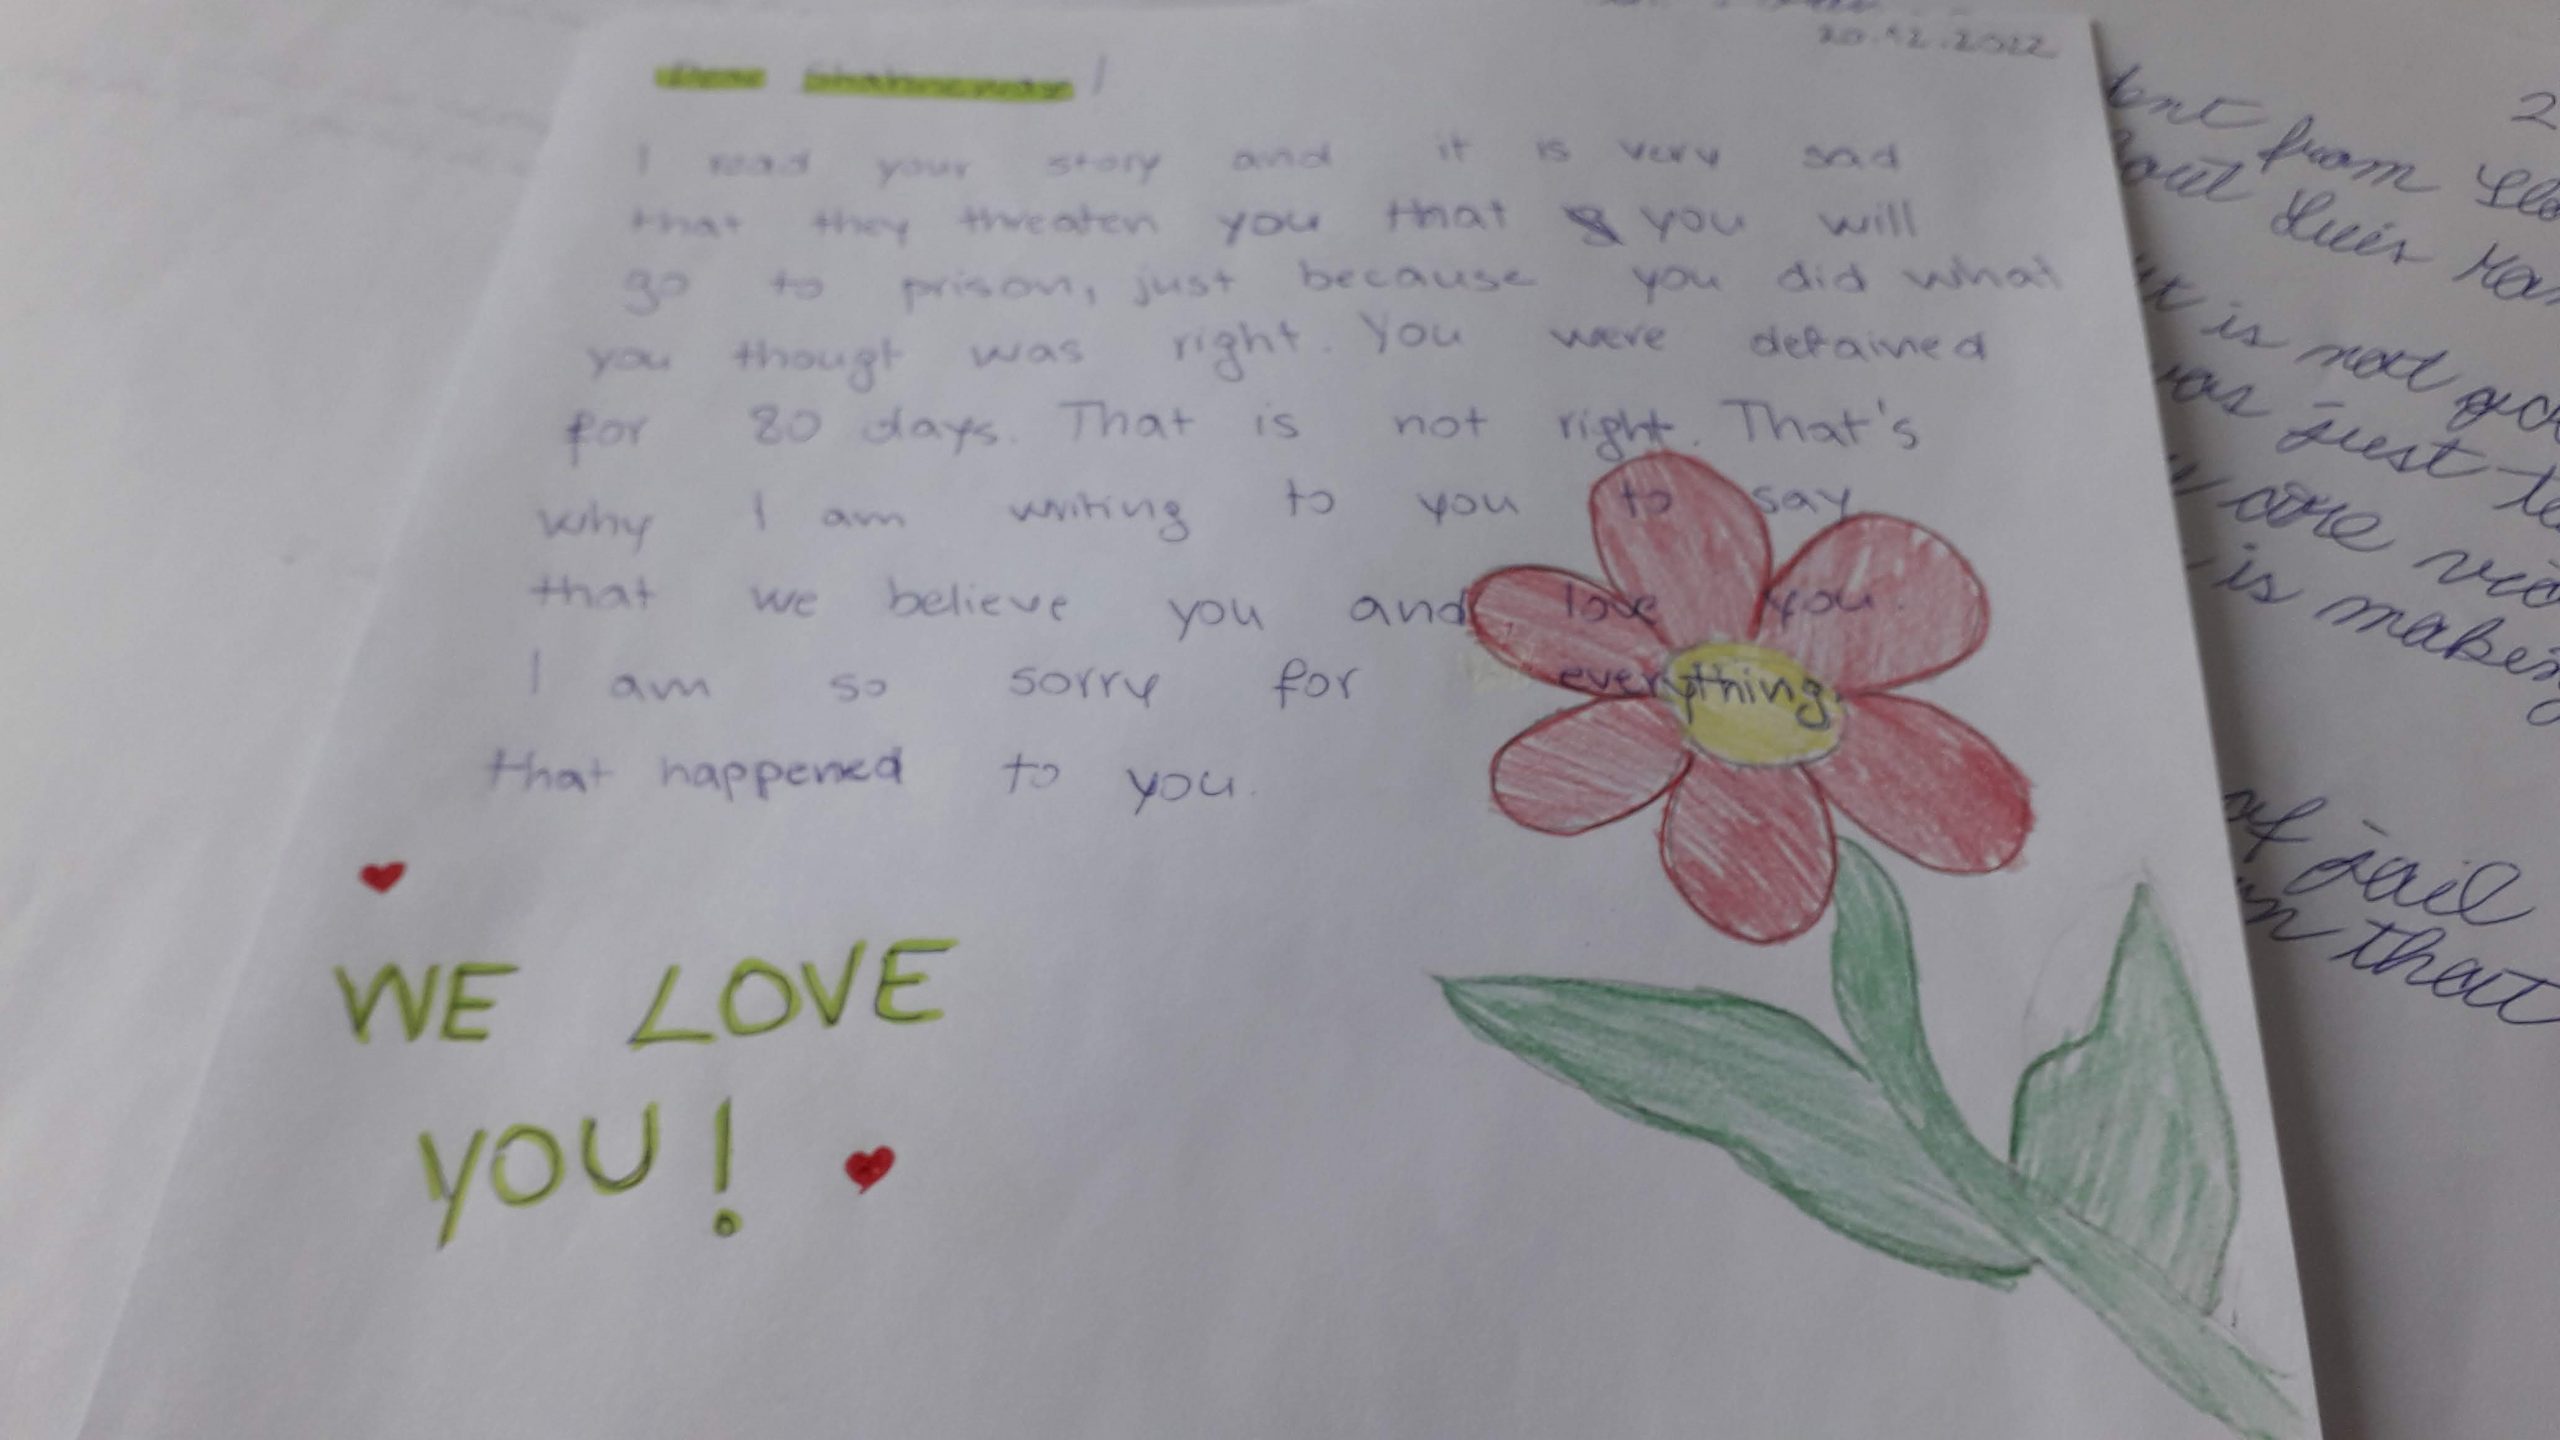 20.12.2022
Dear
I read your story and it is very sad
that they threaten you that you will
go to prison, just because you did what
you thougt was right. You were detained
for 80 days. That is not right. That's
why I am writing to you to say
that we believe you and love you.
I am so sorry for everything
that happened to you.
WE LOVE
YOU!
2
from
Luis
is not
just
core
is making
of jail
that